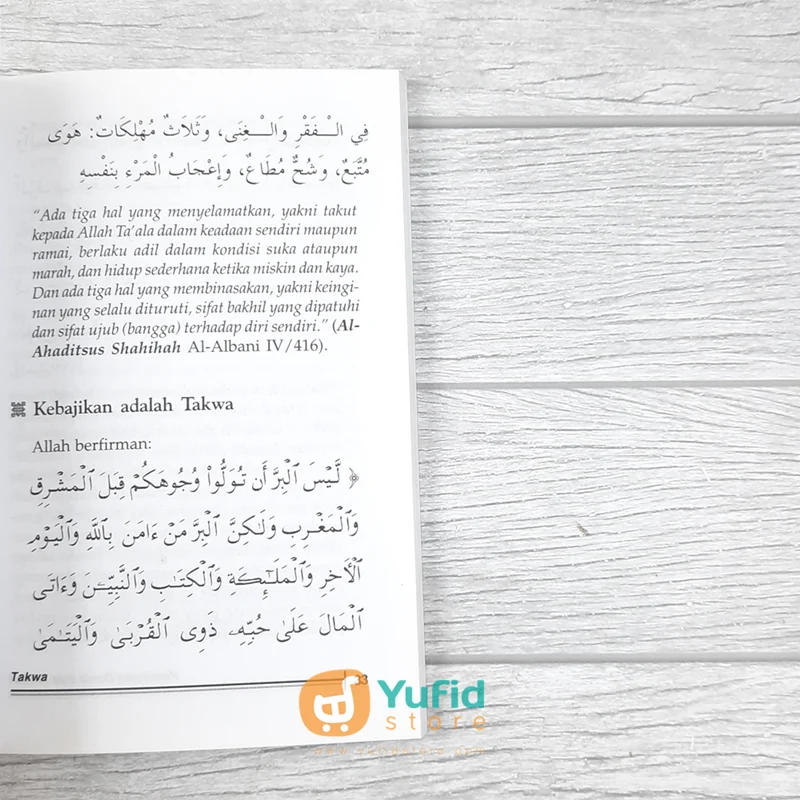 فِي الْـفَقْرِ وَالْـغِنَى، وَثَلَاثٌ مُهْلِكَاتٌ: هَوَى
مُتَّبَعٌ، وَشُحٌّ مُطَاعٌ، وَإِعْجَابُ الْمَرْءِ بِنَفْسِهِ
“Ada tiga hal yang menyelamatkan, yakni takut
kepada Allah Ta’ala dalam keadaan sendiri maupun
ramai, berlaku adil dalam kondisi suka ataupun
marah, dan hidup sederhana ketika miskin dan kaya.
Dan ada tiga hal yang membinasakan, yakni keingi-
nan yang selalu dituruti, sifat bakhil yang dipatuhi
dan sifat ujub (bangga) terhadap diri sendiri.” (Al-
Ahaditsus Shahihah Al-Albani IV/416).
Kebajikan adalah Takwa
Allah berfirman:
﴿ لَّيْسَ ٱلْبِرَّ أَن تُوَلُّوا۟ وُجُوهَكُمْ قِبَلَ ٱلْمَشْرِقِ
وَٱلْمَغْرِبِ وَلَـٰكِنَّ ٱلْبِرَّ مَنْ ءَامَنَ بِٱللَّهِ وَٱلْيَوْمِ
ٱلْأَخِرِ وَٱلْمَلَـٰٓئِكَةِ وَٱلْكِتَـٰبِ وَٱلنَّبِيِّـۧنَ وَءَاتَى
ٱلْمَالَ عَلَىٰ حُبِّهِۦ ذَوِى ٱلْقُرْبَىٰ وَٱلْيَتَـٰمَىٰ
Takwa 33
Yufid
store